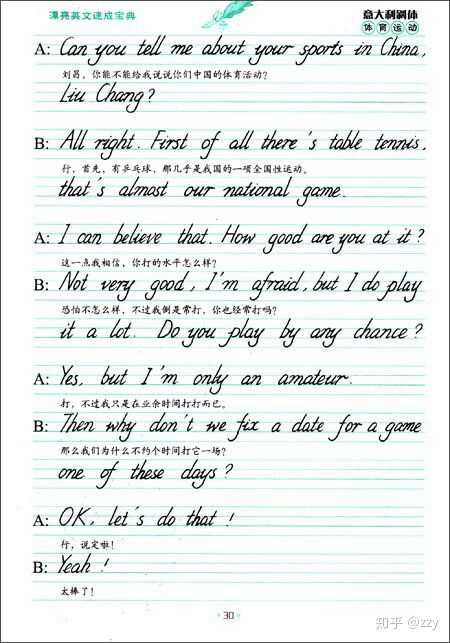 漂亮英文速成宝典
意大利斜体
体育运动
A: Can you tell me about your sports in China,
刘昌，你能不能给我说说你们中国的体育活动？
Liu Chang?
B: All right. First of all there's table tennis,
行，首先，有乒乓球，那几乎是我国的一项全国性运动。
that's almost our national game.
A: I can believe that. How good are you at it?
这一点我相信，你打的水平怎么样？
B: Not very good, I'm afraid, but I do play
恐怕不怎么样，不过我倒是常打，你也经常打吗？
it a lot. Do you play by any chance?
A: Yes, but I'm only an amateur.
打，不过我只是在业余时间打打而已。
B: Then why don't we fix a date for a game
那么我们为什么不约个时间打它一场？
one of these days?
A: OK, let's do that!
行，说定啦！
B: Yeah!
太棒了！
30
知乎 @zzy